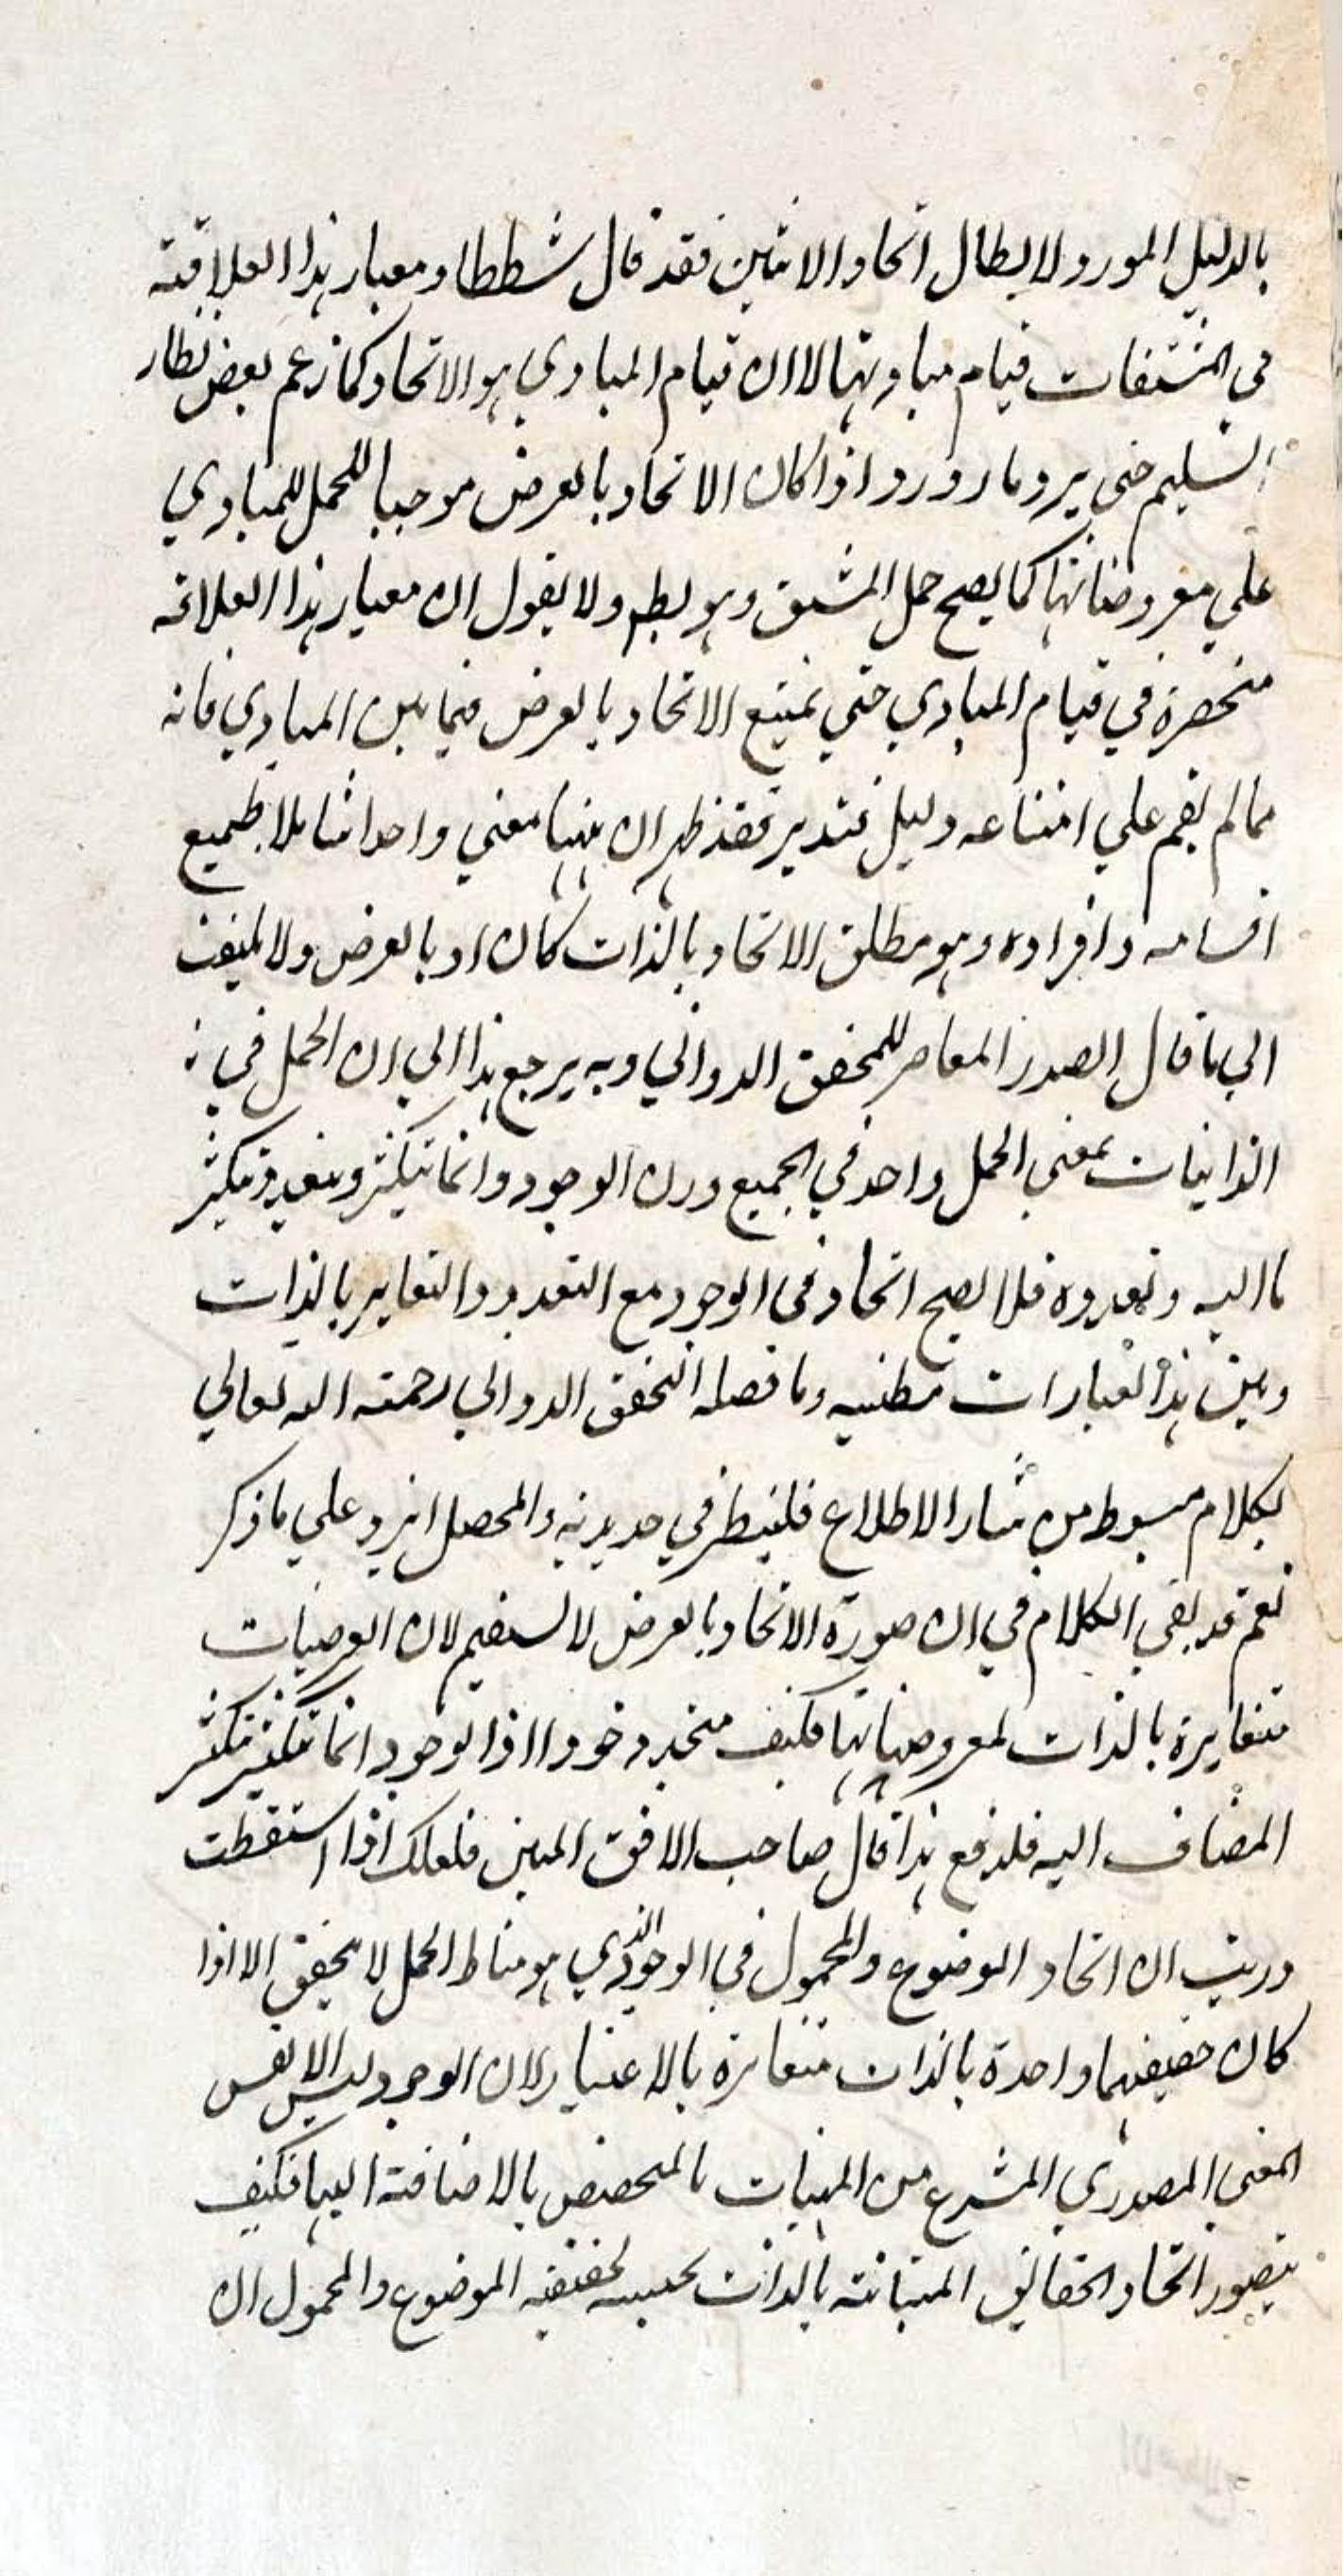 بالدليل المورد لابطال اتحاد الاثنين فقد قال شططا ومعيار هذا العلاقة
في المشتقات قيام مباديها لا ان قيام المبادي هو الاتحاد كما زعم بعض نظار
التسليم حتي يرد ما رد ورد اذا كان الاتحاد بالعرض موجبا للحمل للمبادي
علي معروضاتها كما يصح حمل المشتق وهو بط ولا يقول ان معيار هذا العلاقه
منحصرة في قيام المبادي حتي يمتنع الاتحاد بالعرض فيما بين المبادي فانه
مما لم يقم علي امتناعه دليل فتدبر فقد ظهر ان بينها معني واحدا شاملا لجميع
اقسامه وافراده وهو مطلق الاتحاد بالذات كان او بالعرض ولا يلتفت
الي ما قال الصدر المعاصر للمحقق الدواني وبه يرجع هذا الي ان الحمل في
الذاتيات بمعني الحمل واحد في الجميع ودن الوجود وانما يتكثر ويتعدد بتكثر
ما اليه وتعدده فلا يصح اتحاد في الوجود مع التعدد والتغاير بالذات
وبين هذا العبارات مطنبه وما فصله المحقق الدواني رحمته الله تعالي
بكلام مبسوط من شاء الاطلاع فلينظر في جديديه والمحصل انه يرد علي ما ذكر
نعم قد بقي الكلام في ان صورة الاتحاد بالعرض لا يستقيم لان العرضيات
متغايرة بالذات لمعروضاتها فكيف متحد وجودا اذ الوجود انما يتكثر بتكثر
المضاف اليه فلدفع هذا قال صاحب الافق المبين فلعلك اذا استقطت
دريت ان اتحاد الموضوع والمحمول في الوجود الذي هو مناط الحمل لا يحقق الا اذا
كان حقيقتهما واحدة بالذات متغائرة بالاعتبار لان الوجود ليس الا نفس
المعني المصدري المنتزع من المهيات المتحصص بالاضافته اليها فكيف
يتصور اتحاد الحقائق المتبائنه بالذات بحسبه لحقيقه الموضوع والمحمول ان